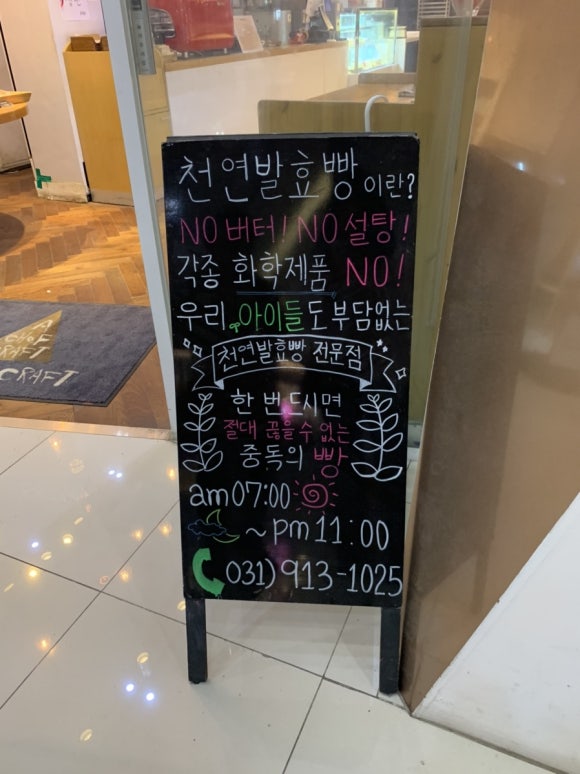 천연발효빵 이란?
NO버터! NO설탕!
각종 화학제품 NO!
우리 아이들도 부담없는
천연발효빵 전문점
한 번 드시면
절대 끊을 수 없는
중독의 빵
am 07:00
~ pm 11:00
031) 913-1025
A
CHOF
CRAFT
CRAFT